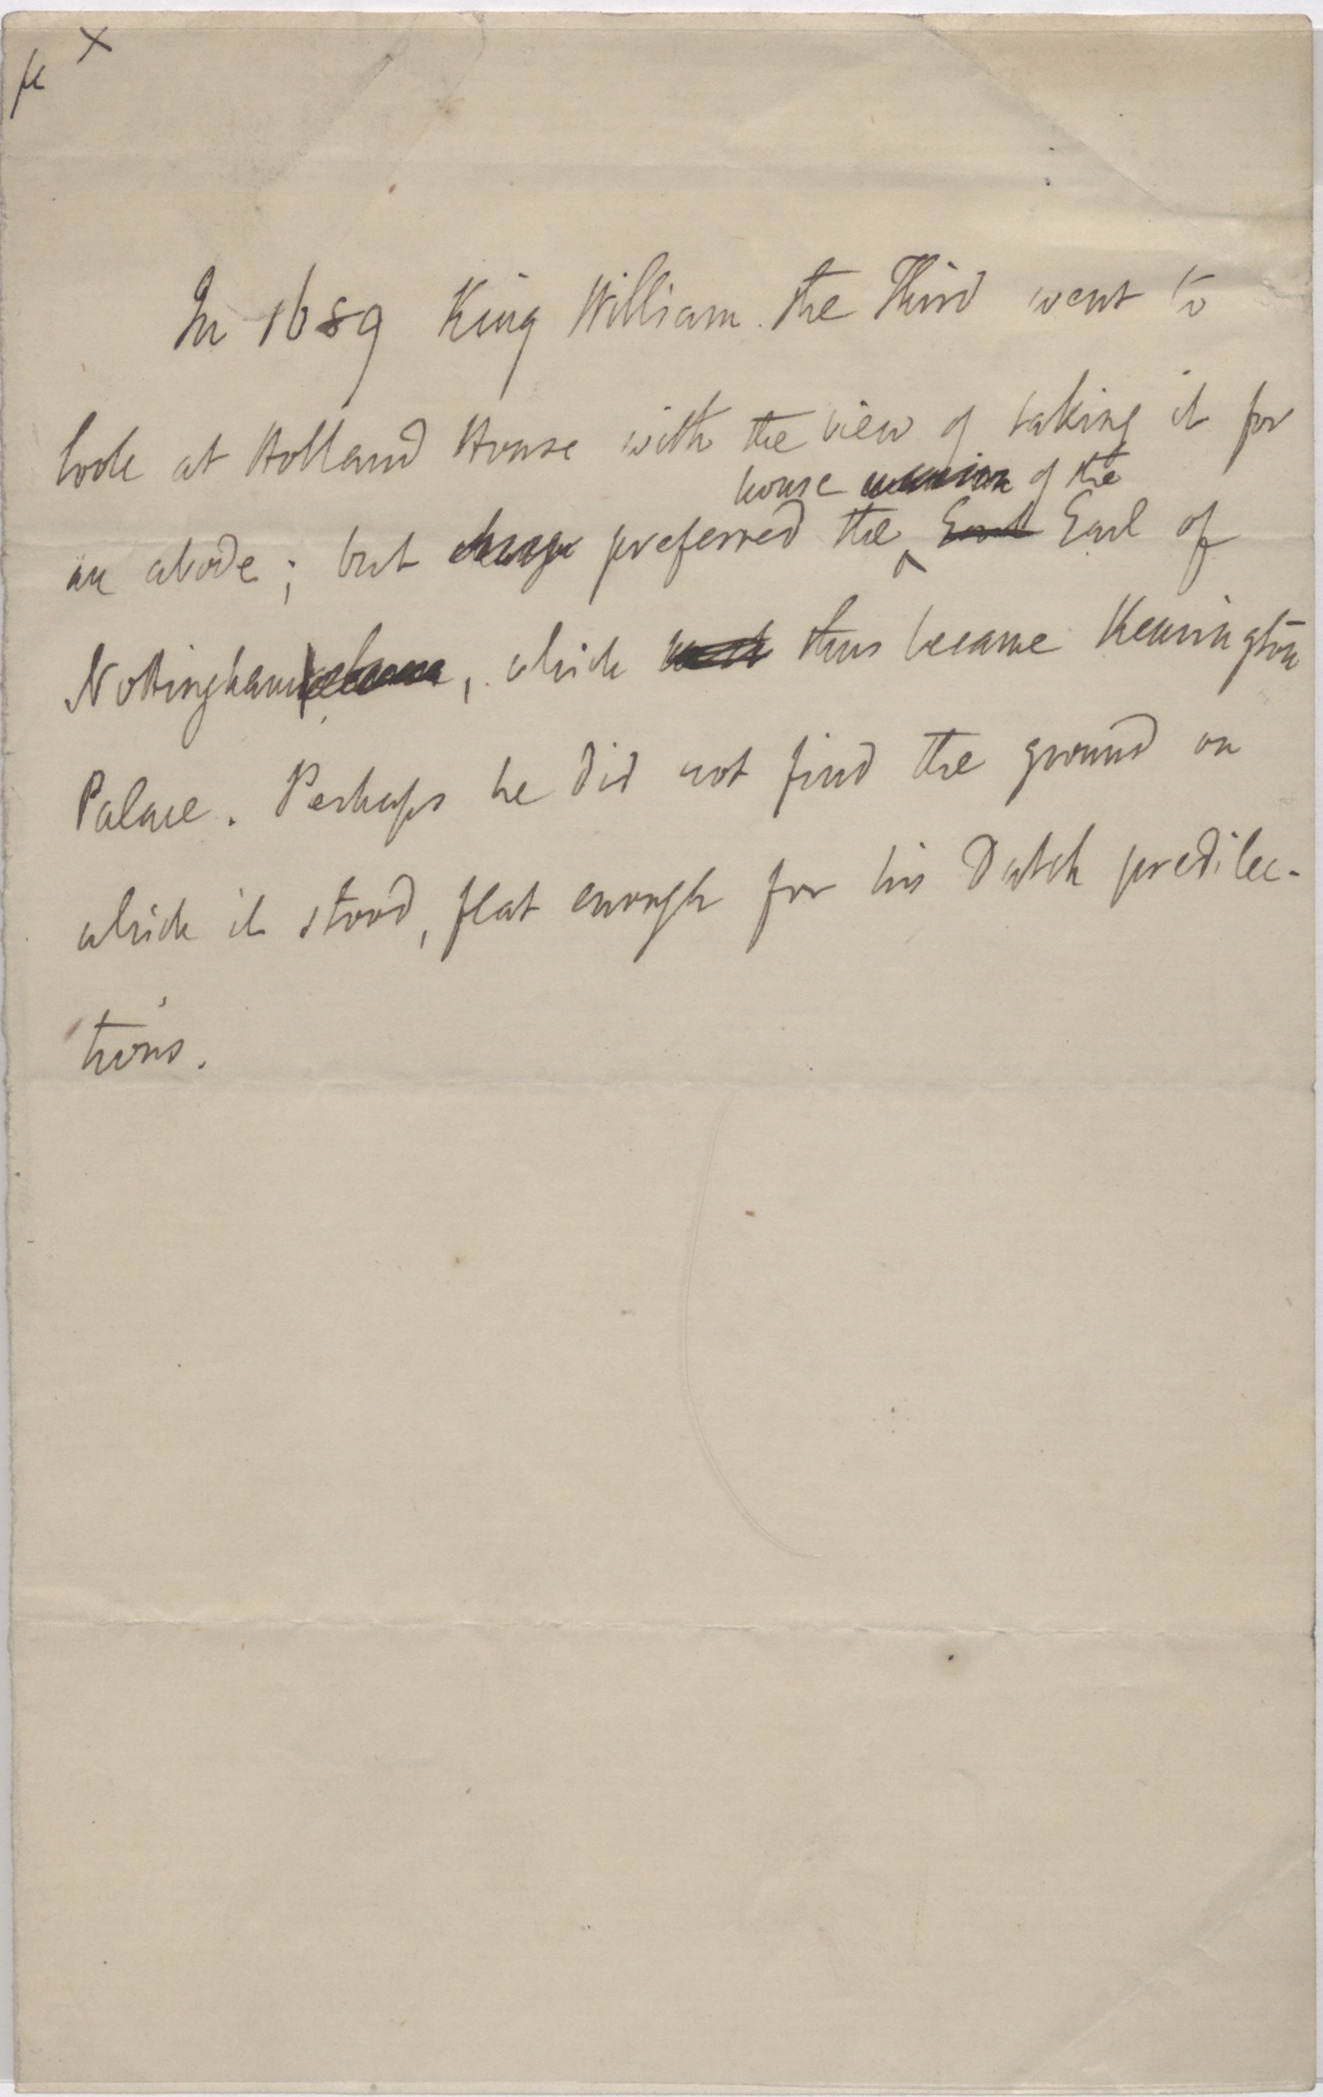 X
In 1689 King William the Third went to
look at Holland House with the view of taking it for
house mansion of the
an abode; but preferred the ‸ Earl Earl of
Nottingham, which thus became Kensington
Palace. Perhaps he did not find the ground on
which it stood, flat enough for his Dutch predilec-
tions.